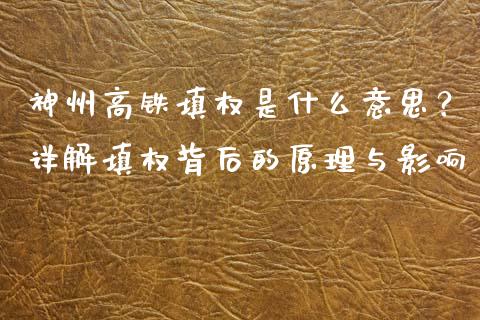 神州高铁填权是什么意思？
详解填权背后的原理与影响